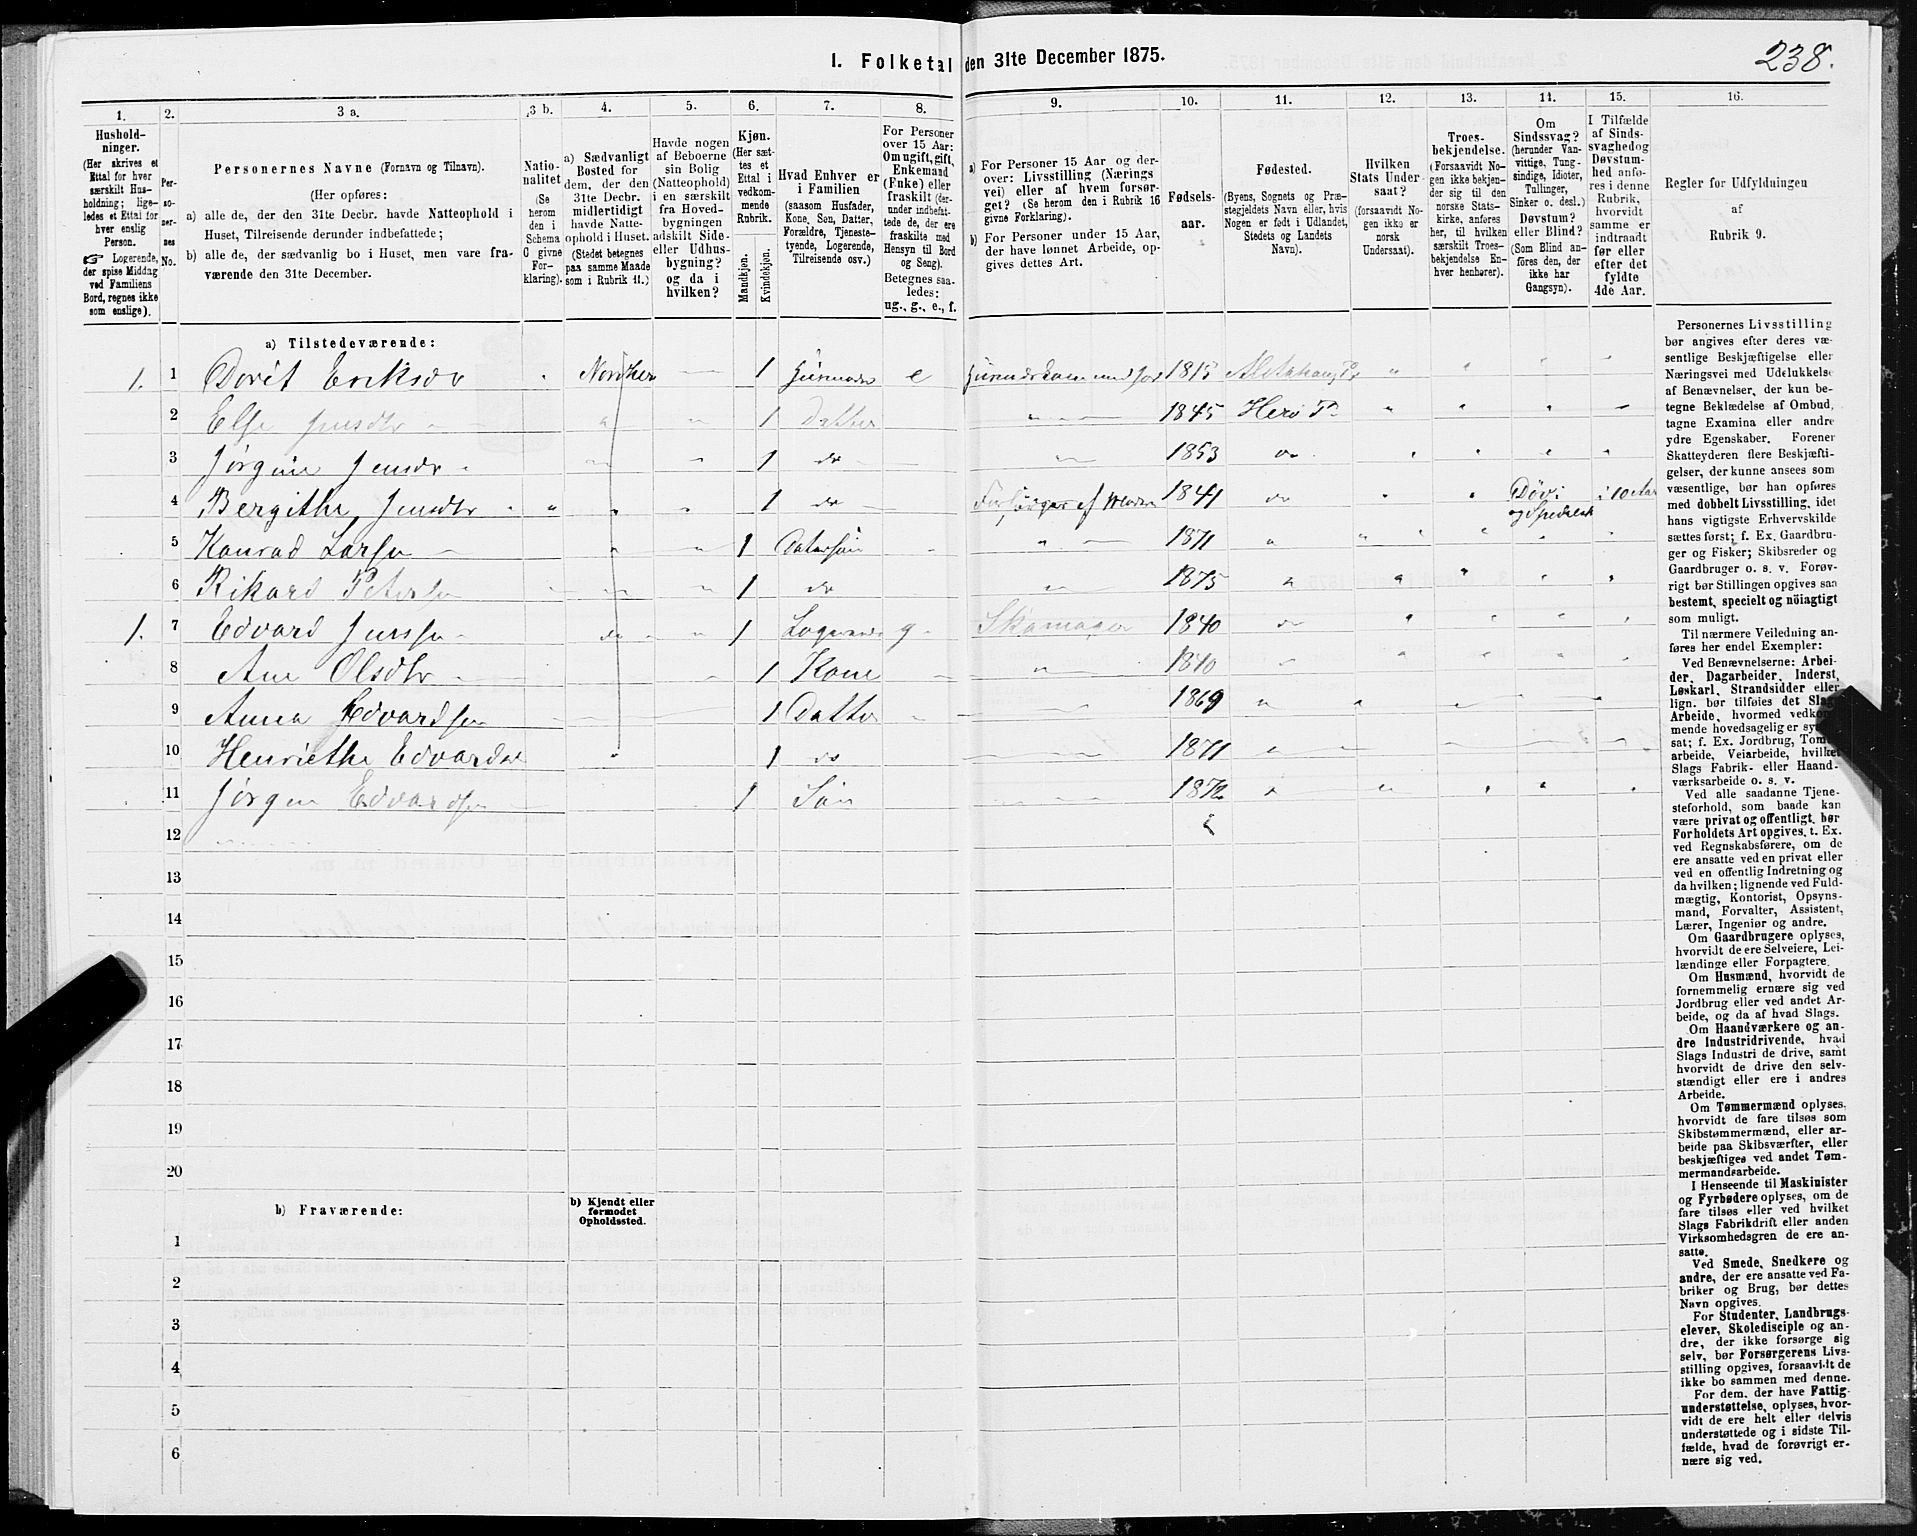 1. Folketal den 31te December 1875.
238.
1.
Hushold-
ninger.
(Her skrives et
Ettal for hver
særskilt Hus-
holdning; lige-
ledes et Ettal for
hver enslig
Person.
☞ Logerende,
der spise Middag
ved Familiens
Bord, regnes ikke
som enslige).
2.
Per-
so-
ner-
nes
No.
3 a.
Personernes Navne (Fornavn og Tilnavn).
(Her opføres:
a) alle de, der den 31te Decbr. havde Natteophold i
Huset, Tilreisende derunder indbefattede;
b) alle de, der sædvanlig bo i Huset, men vare fra-
værende den 31te December.
3 b.
Natio-
nalitet
(Se
herom
den i
Schema
C givne
For-
klaring).
4.
a) Sædvanligt
Bosted for
dem, der den
31te Decbr.
midlertidigt
havde Natte-
ophold i Huset.
(Stedet betegnes
paa samme Maade
som i Rubrik 11.)
5.
Havde nogen
af Beboerne
sin Bolig
(Natteophold)
i en særskilt
fra Hoved-
bygningen
adskilt Side-
eller Udhus-
bygning?
og da i
hvilken?
6.
Kjøn.
(Her sæt-
tes et
Ettal i
vedkom-
mende
Rubrik.
Mandkjøn.
Kvindekjøn.
7.
Hvad Enhver er
i Familien
(saasom Husfader,
Kone, Søn, Datter,
Forældre, Tjeneste-
tyende, Logerende,
Tilreisende osv.)
8.
For Personer
over 15 Aar:
Om ugift, gift,
Enkemand
(Enke) eller
fraskilt (der-
under indbefat-
tede de, der ere
fraskilte med
Hensyn til Bord
og Seng).
Betegnes saa-
ledes:
ug., g., e., f.
9.
a) For Personer 15 Aar og der-
over: Livsstilling (Nærings
vei) eller af hvem forsør-
get? (Se herom den i Rubrik 16
givne Forklaring).
b) For Personer under 15 Aar,
der have lønnet Arbeide, op-
gives dettes Art.
10.
Fødsels-
aar.
11.
Fødested.
(Byens, Sognets og Præ-
stegjeldets Navn eller, hvis
Nogen er født i Udlandet,
Stedets og Landets
Navn).
12.
Hvilken
Stats Under-
saat?
(forsaavidt No-
gen ikke er
norsk
Undersaat).
13.
Troes-
bekjendelse.
(Forsaavidt No-
gen ikke bekjen-
der sig til den
norske Stats-
kirke, anføres
her, til hvilken
særskilt Troes-
bekjendelse En-
hver henhører).
14.
Om
Sindssvag?
(herunder Van-
vittige, Tung-
sindige, Idioter,
Tullinger,
Sinker o. desl.)
Døvstum?
eller Blind?
(Som Blind an-
føres den, der
ikke har
Gangsyn).
15.
I Tilfælde
af Sinds-
svaghed og
Døvstum-
hed anfø-
res i denne
Rubrik,
hvorvidt
samme er
indtraadt
før eller
efter det
fyldte
4de Aar.
16.
Regler for Udfyldningen
af
Rubrik 9.
a) Tilstedeværende:
1. 1 Dorit Eriksdr 1 e 1815
2 Else Jensdtr 1 Datter 1845 Herø P
3 Jørgine Jensdr 1 do 1853 do
4 Bergithe Jensdtr 1 do Forsørges af Moder 1841 do Døv i 10 Aar
og Spedalsk
5 Konrad Larsen 1 1871
6 Rikard Petersen 1 do 1875
1. 7 Edvard Jenssen do 1 g Skomager 1840 do
8 Ane Olsdtr 1 Kone 1840
9 Anna Edvardsen 1 Datter 1869
10 Henriethe Edvardsd 1 do 1871
11 Jørgen Edvardsen 1 Søn 1872
12
13
14
15
16
17
18
19
20
b) Fraværende:
b) Kjendt eller
formodet
Opholdssted.
1
2
3
4
5
6
Personernes Livsstilling
bør angives efter deres væ-
sentlige Beskjæftigelse eller
Næringsvei med Udelukkelse
af Benævnelser, der kun be-
tegne Beklædelse af Ombud,
tagne Examina eller andre
ydre Egenskaber. Forener
Skatteyderen flere Beskjæfti-
gelser, der kunne ansees som
væsentlige, bør han opføres
med dobbelt Livsstilling, idet
hans vigtigste Erhvervskilde
sættes først; f. Ex. Gaardbru-
ger og Fisker; Skibsreder og
Gaardbruger o. s. v. Forøv-
rigt bør Stillingen opgives saa
bestemt, specielt og nöiagtigt
som muligt.
Til nærmere Veiledning an-
føres her endel Exempler:
Ved Benævnelserne: Arbei-
der, Dagarbeider, Inderst,
Løskarl, Strandsidder eller
lign. bør tilføies det Slags
Arbeide, hvormed vedkom-
mende hovedsagelig er syssel-
sat; f. Ex. Jordbrug, Tomte-
arbeide, Veiarbeide, hvilket
Slags Fabrik- eller Haand-
værksarbeide o. s. v.
Ved alle saadanne Tjene-
steforhold, som baade kan
være privat og offentligt, bør
Forholdets Art opgives, t. Ex.
ved Regnskabsførere, om de
ere ansatte ved en privat eller
ved en offentlig Indretning og
da hvilken; lignende ved Fuld-
mægtig, Kontorist, Opsyns-
mand, Forvalter, Assistent,
Lærer, Ingeniør og andre.
Om Gaardbrugere oplyses,
hvorvidt de ere Selveiere, Lei-
lændinge eller Forpagtere.
Om Husmænd, hvorvidt de
fornemmelig ernære sig ved
Jordbrug eller ved andet Ar-
beide, og da af hvad Slags.
Om Haandværkere og an-
dre Industridrivende, hvad
Slags Industri de drive, samt
hvorvidt de drive den selv-
stændigt eller ere i andres
Arbeide.
Om Tømmermænd oplyses,
hvorvidt de fare tilsøs som
Skibstømmermænd, eller ar-
beide paa Skibsværfter, eller
beskjæftiges ved andet Tøm-
mermandsarbeide.
I Henseende til Maskinister
og Fyrbødere oplyses, om de
fare tilsøs eller ved hvilket
Slags Fabrikdrift eller anden
Virksomhedsgren de ere an-
satte.
Ved Smede, Snedkere og
andre, der ere ansatte ved Fa-
briker og Brug, bør dettes
Navn opgives.
For Studenter, Landbrugs-
elever, Skoledisciple og an-
dre, der ikke forsørge sig
selv, bør Forsørgerens Livs-
stilling opgives, forsaavidt de
ikke bo sammen med denne.
For dem, der have Fattig-
understøttelse, oplyses, hvor-
vidt de ere helt eller delvis
understøttede og i sidste Til-
fælde, hvad de forøvrigt er-
nære sig ved.